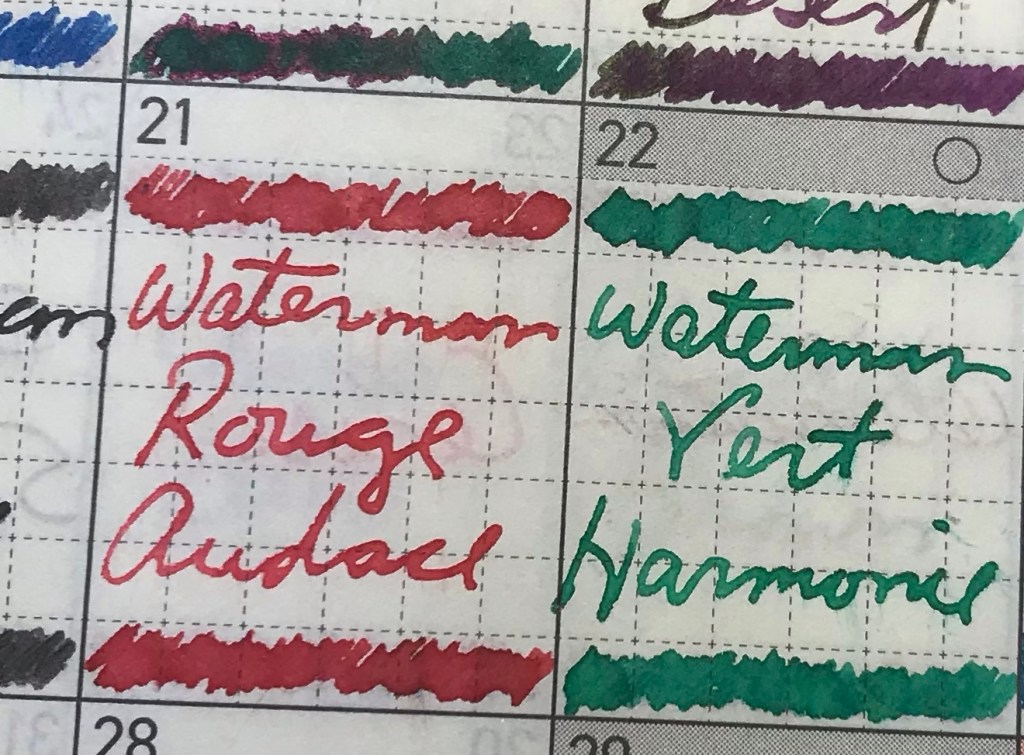 Desert
21
22
Waterman
Rouge
Audace
Waterman
Vert
Harmonie
28
29